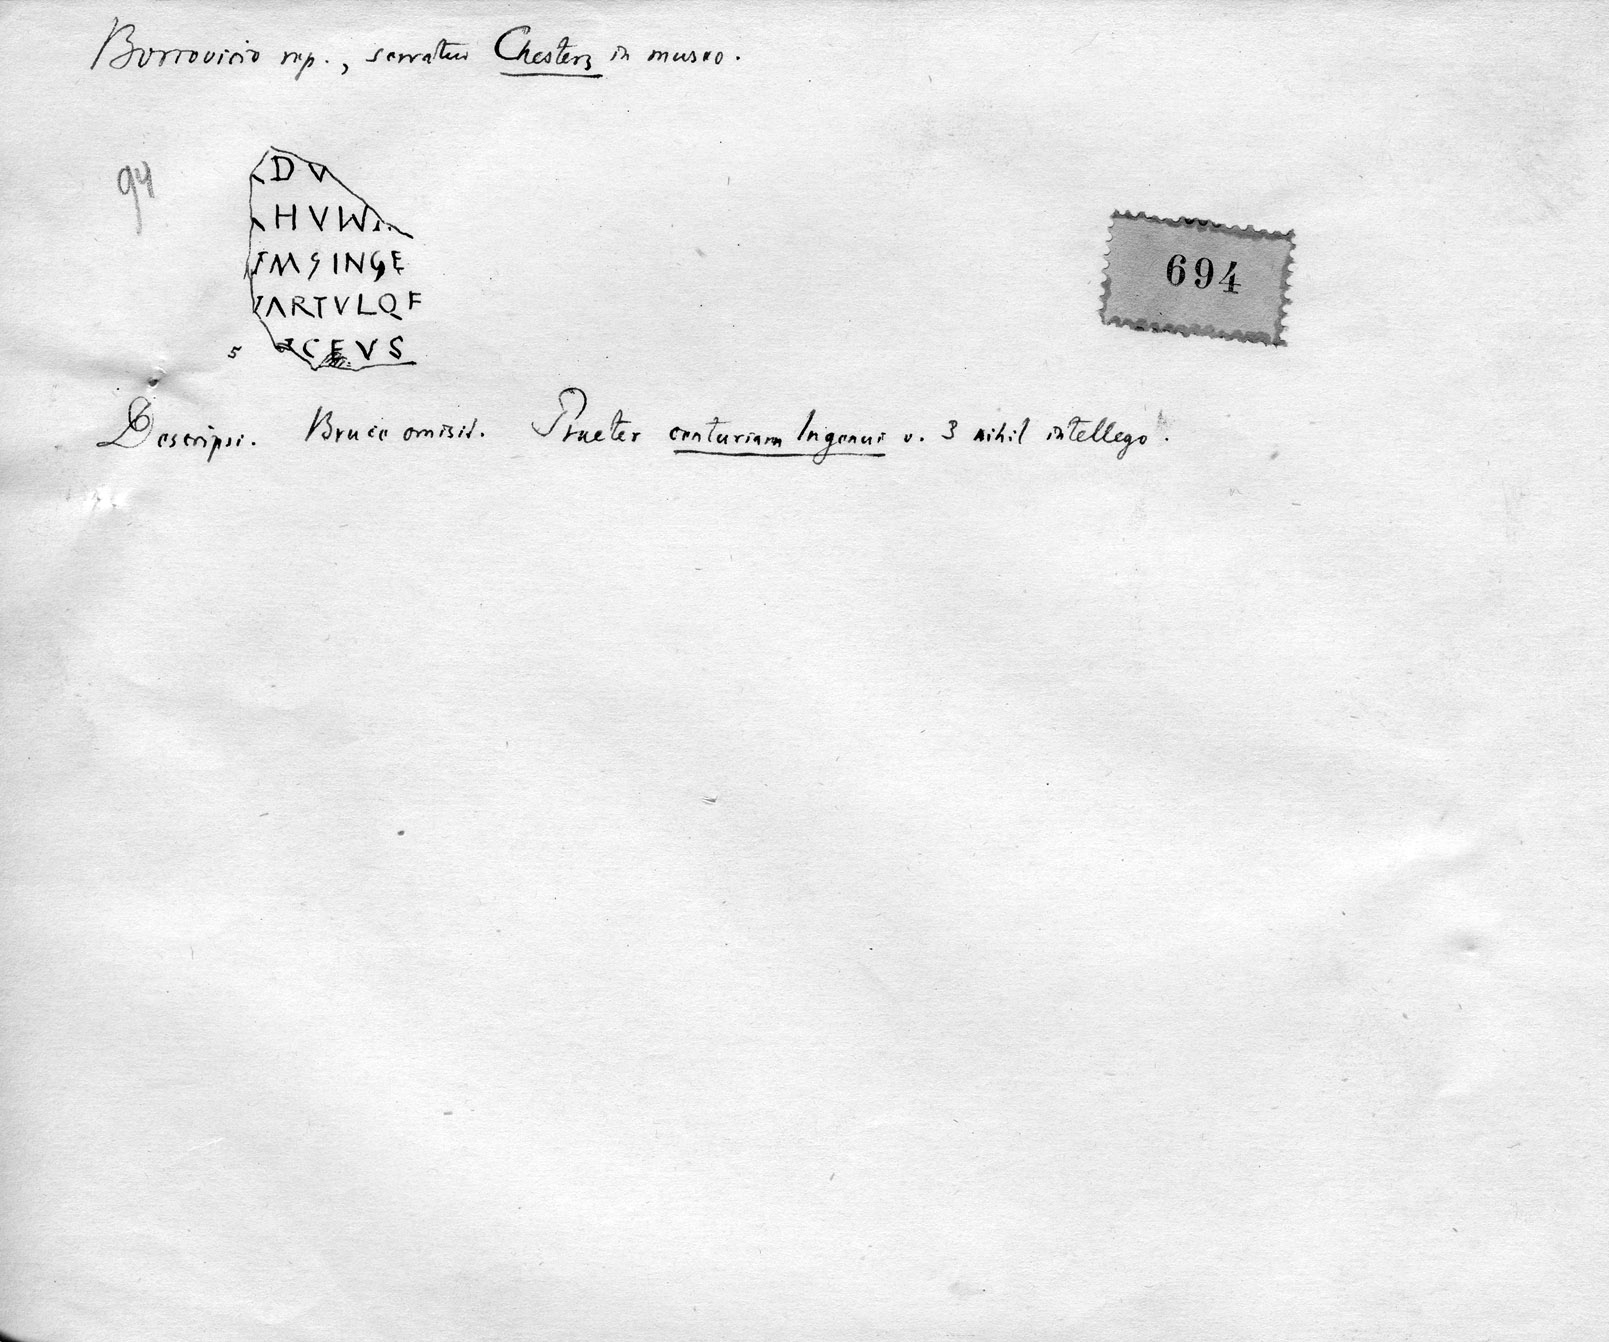 Borrovicio rep., servatur Chesters in museo.
94
D V
HVW
MSINGE
ARTVLQF
5 CEVS
694
Descripsi. Bruce omisit. Praeter centuriam Ingenui v. 3 nihil intellego.